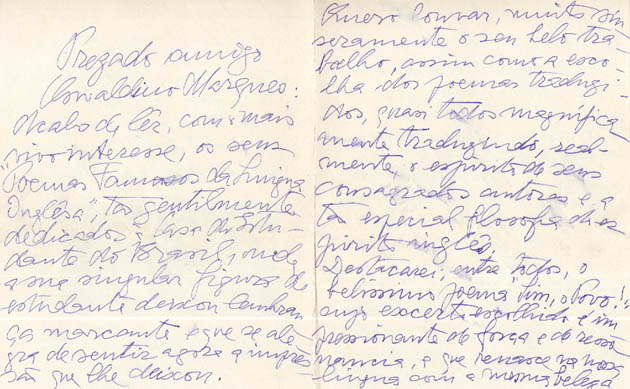 Prezado amigo
Osvaldino Marques:
Acabo de lêr, com o mais
vivo interesse, os seus
"Poemas Famosos da Lingua
Inglêsa", tão gentilmente
dedicados à Casa do Estu-
dante do Brasil, onde
a sua singular figura de
estudante deixou lembran
ça marcante e que se ale
gra de sentir agora a impres
são que lhe deixou.
Quero louvar, muito sin
seramente o seu belo tra
balho, assim como a esco
lha dos poemas traduzi
dos, quasi todos magnífica
mente traduzindo, real-
mente o espirito de seus
consagrados autores e a
tão especial filosofia do es
pirito inglês.
Destacarei, entre todos, o
belissimo poema "Sim, o Povo!",
cujo excerto escolhido é im
pressionante de força e de resso
nancia, e que renasce na nossa
lingua com a mesma beleza